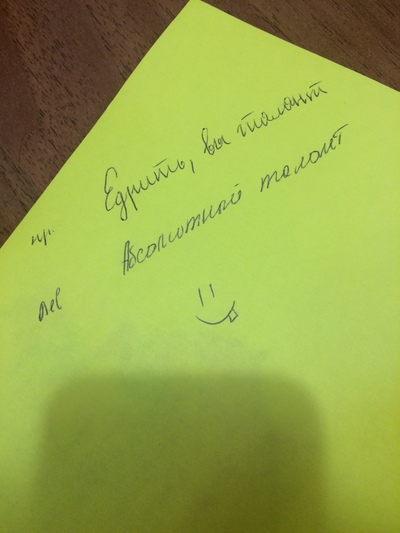 Едрить, вы талант
пр.
Абсолютный талант
лев